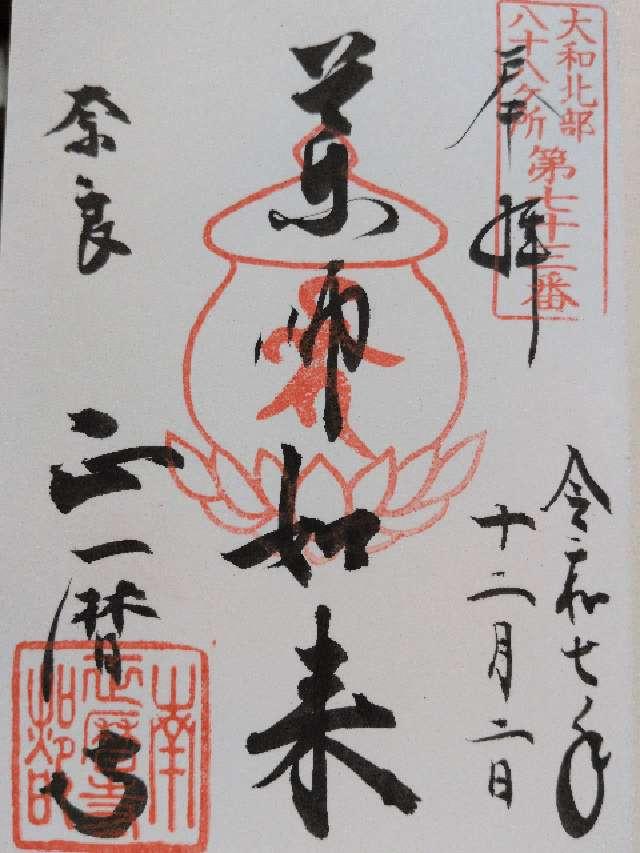 大和北部
八十八ヶ所第七十三番
奉拝
令和七年
十二月二日
薬師如来
奈良
正暦寺